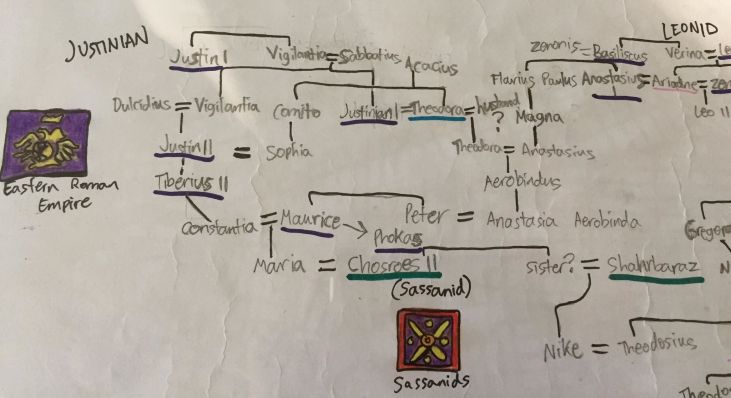 JUSTINIAN
LEONID
Justin I Vigilantia = Sabbatius Acacius
zenonis = Basiliscus Verina =
Flavius Paulus Anastasius = Ariadne =
Dulcidius = Vigilantia Comito Justinian I = Theodora = husband ? Magna Leo II
Justin II = Sophia Theodora = Anastasius
Tiberius II Aerobindus
Constantia = Maurice Peter = Anastasia Aerobinda
Phokas
Maria = Chosroes II sister? = Shahrbaraz
(Sassanid)
Nike = Theodosius
Eastern Roman
Empire
Sassanids